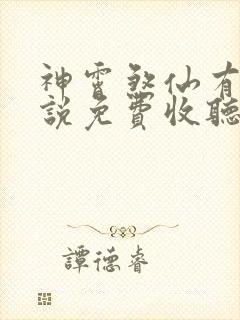 神霄煞仙有
說免費收聽
譚德睿